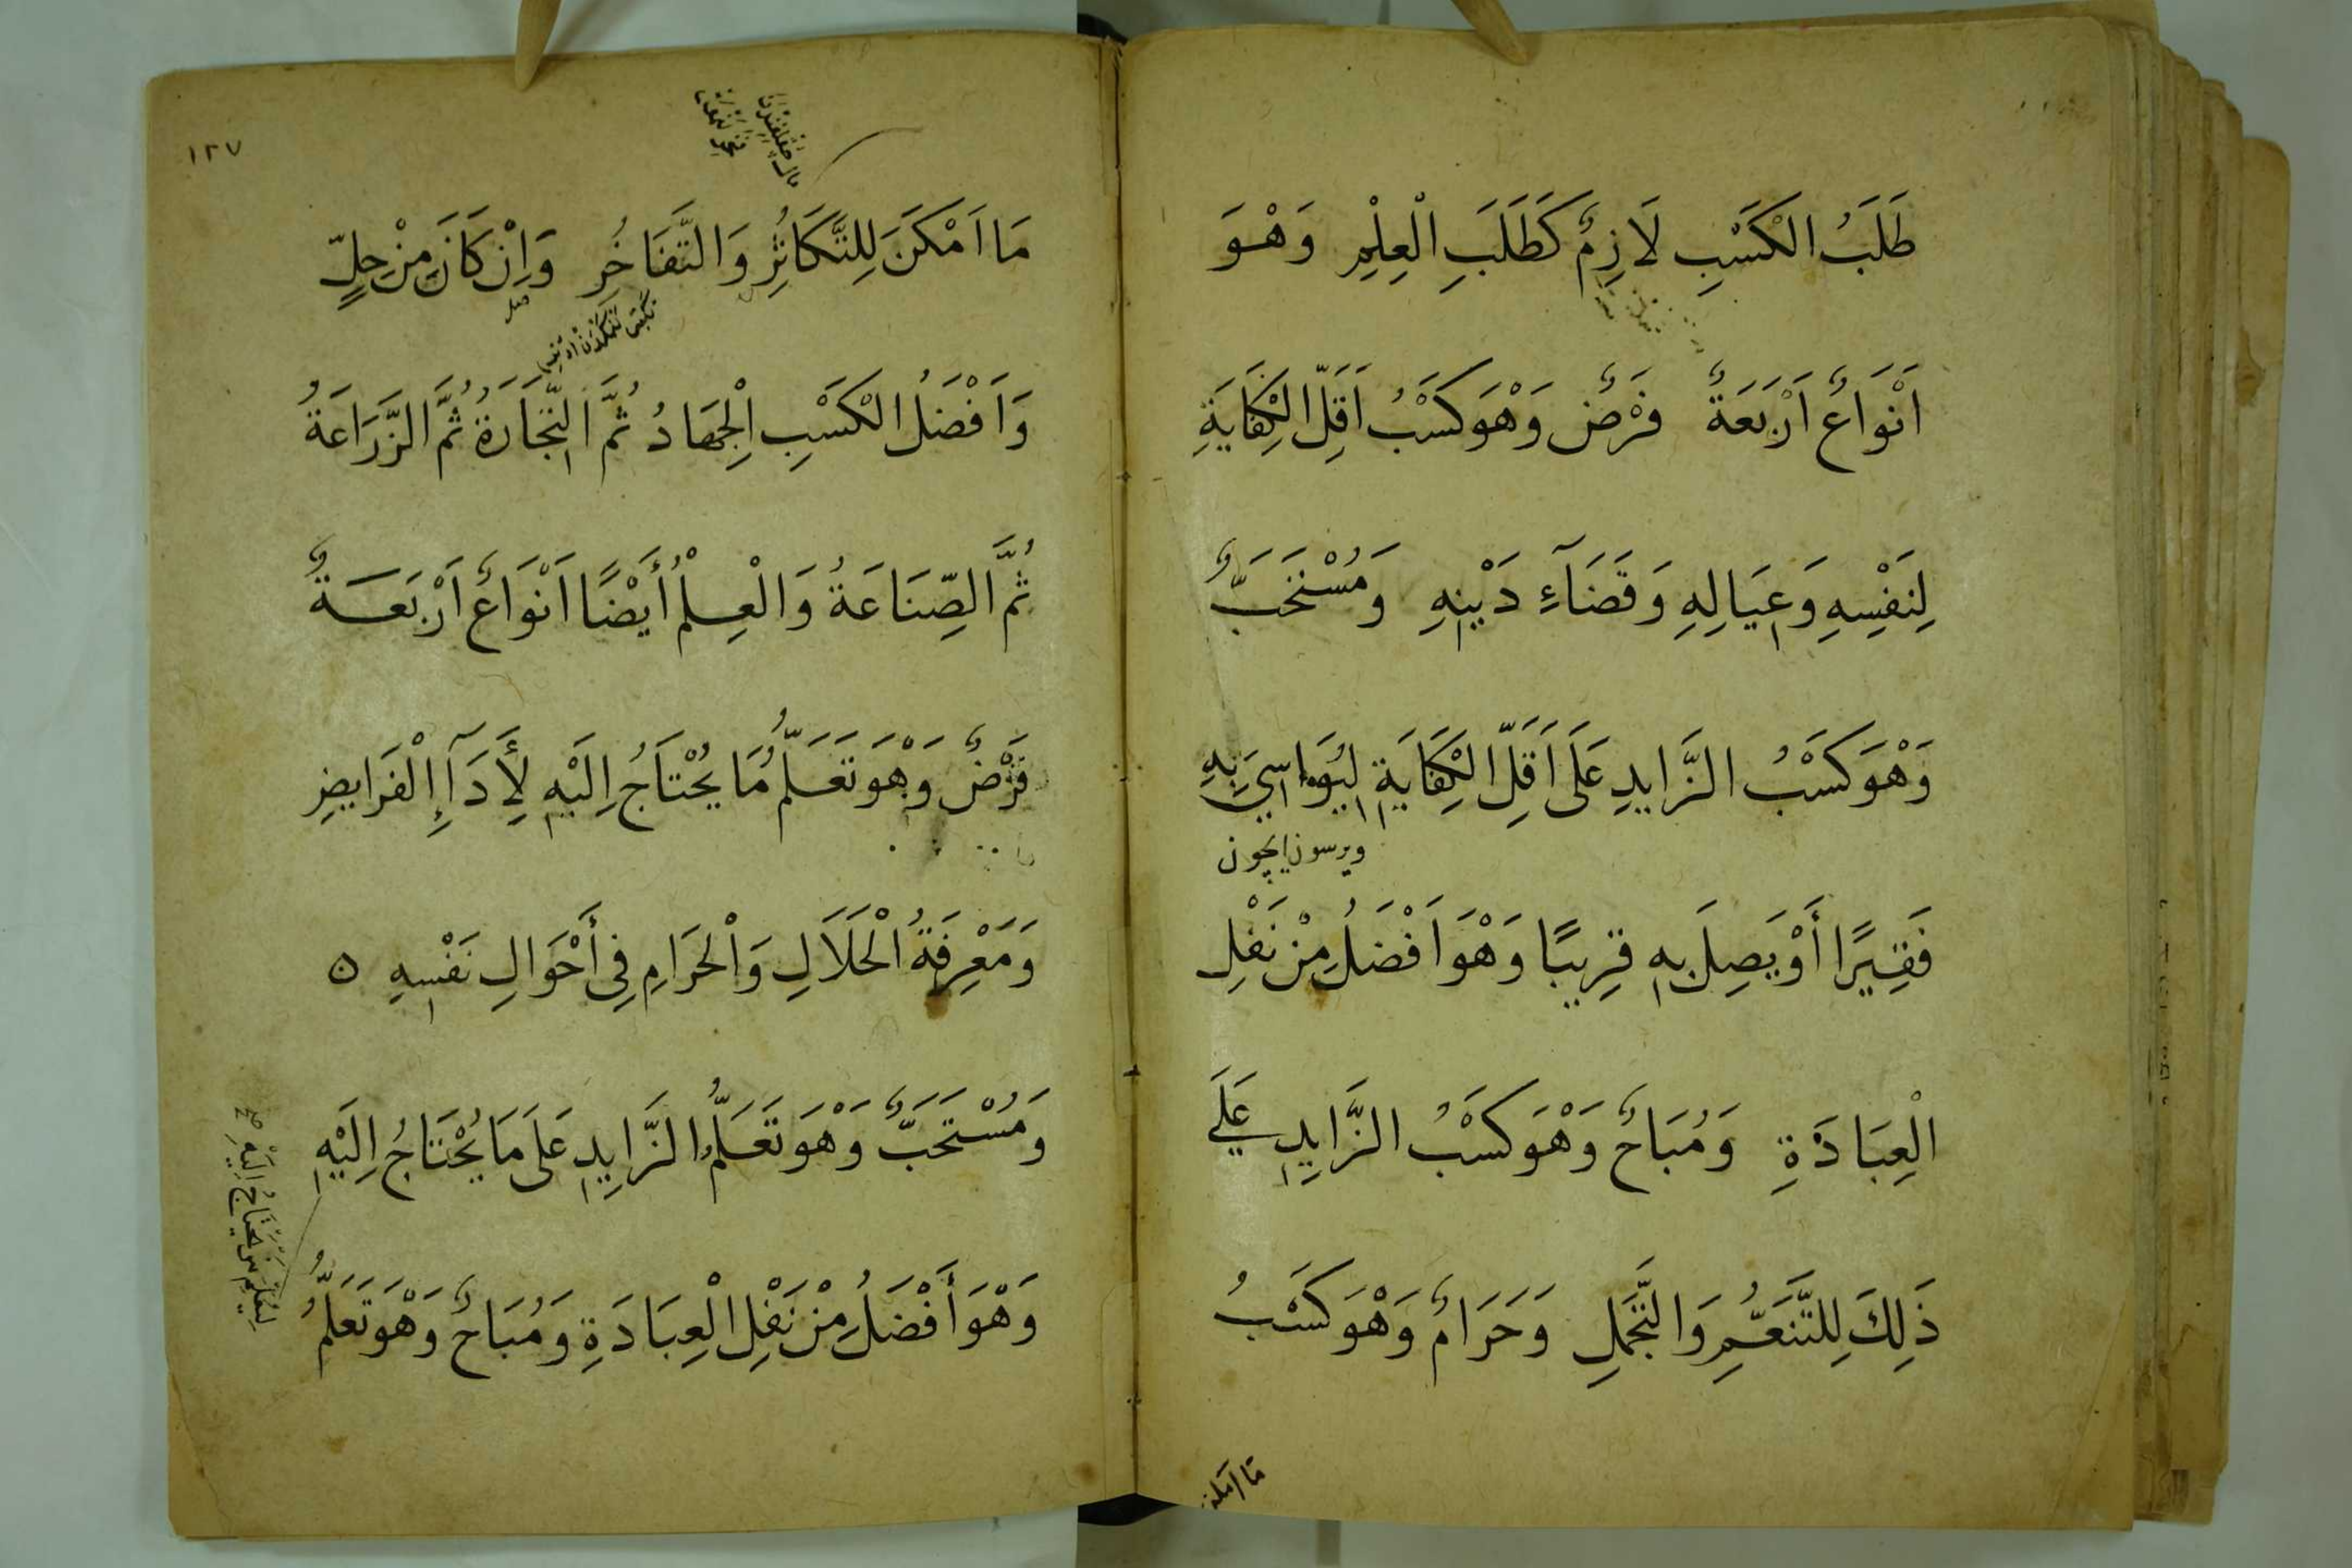 طَلَبُ الْكَسْبِ لَازِمٌ كَطَلَبِ الْعِلْمِ وَهْوَ
اَنْوَاعٌ اَرْبَعَةٌ فَرْضٌ وَهْوَ كَسْبُ اَقَلِّ الْكِفَايَةِ
لِنَفْسِهِ وَعِيَالِهِ وَقَضَآءِ دَيْنِهِ وَمُسْتَحَبٌّ
وَهْوَ كَسْبُ الزَّايِدِ عَلَى اَقَلِّ الْكِفَايَةِ لِيُوَاسِيَ بِهِ
ويرسون ايچون
فَقِيرًا أَوْ يَصِلَ بِهِ قِرِيبًا وَهْوَ اَفْضَلُ مِنْ نَفْلِ
الْعِبَادَةِ وَمُبَاحٌ وَهْوَ كَسْبُ الزَّايِدِ عَلَى
ذَلِكَ لِلتَّنَعُّمِ وَالتَّجَمُّلِ وَحَرَامٌ وَهْوَ كَسْبُ
مَا اَمكن
١٢٧
مَا اَمْكَنَ لِلتَّكَاثُرِ وَالتَّفَاخُرِ وَاِنْ كَانَ مِنْ حِلٍّ
وَاَفْضَلُ الْكَسْبِ الْجِهَادُ ثُمَّ التِّجَارَةُ ثُمَّ الزَّرَاعَةُ
ثُمَّ الصِّنَاعَةُ وَالْعِلْمُ أَيْضًا اَنْوَاعٌ اَرْبَعَةٌ
فَرْضٌ وَهْوَ تَعَلُّمُ مَا يُحْتَاجُ اِلَيْهِ لِأَدَآءِ الْفَرَايِضِ
وَمَعْرِفَةُ الْحَلَالِ وَالْحَرَامِ فِى أَحْوَالِ نَفْسِهِ ۝
وَمُسْتَحَبٌّ وَهْوَ تَعَلُّمُ الزَّايِدِ عَلَى مَا يُحْتَاجُ اِلَيْهِ
لِيُعَلِّمَ مَنْ يَحْتَاجُ اِلَيْهِ صح
وَهْوَ أَفْضَلُ مِنْ نَفْلِ الْعِبَادَةِ وَمُبَاحٌ وَهْوَ تَعَلُّمُ